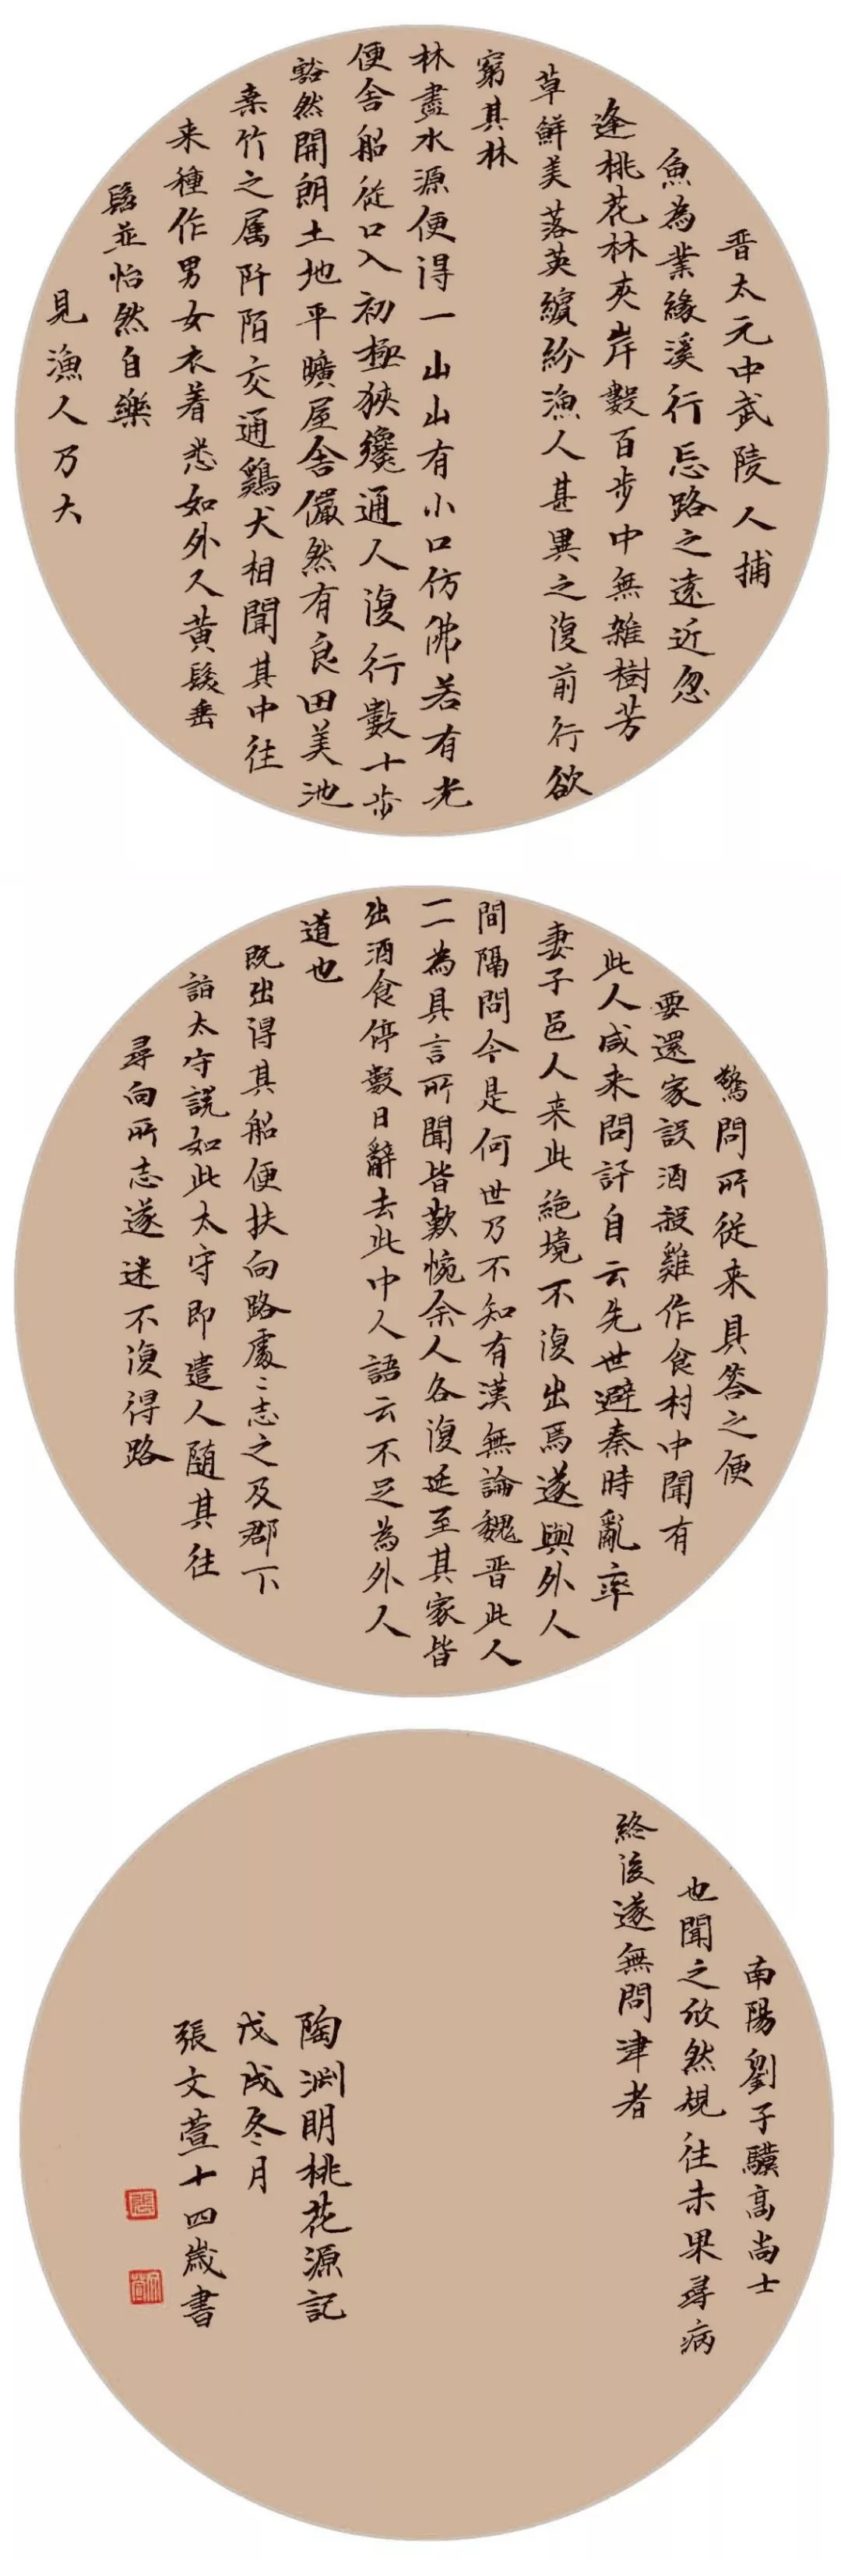 晋太元中武陵人捕
魚為業緣溪行忘路之遠近忽
逢桃花林夾岸數百步中無雜樹芳
草鮮美落英繽紛漁人甚異之復前行欲
窮其林
林盡水源便得一山山有小口仿佛若有光
便舍船從口入初極狹纔通人復行數十步
豁然開朗土地平曠屋舍儼然有良田美池
桑竹之属阡陌交通鷄犬相聞其中往
来種作男女衣着悉如外人黄髮垂
髫並怡然自樂
見漁人乃大
驚問所從来具答之便
要還家設酒殺雞作食村中聞有
此人咸来問訐自云先世避秦時亂率
妻子邑人来此絶境不復出焉遂與外人
間隔問今是何世乃不知有漢無論魏晋此人
一一為具言所聞皆歎惋余人各復延至其家皆
出酒食停數日辭去此中人語云不足為外人
道也
既出得其船便扶向路處〻志之及郡下
詣太守説如此太守即遣人随其往
尋向所志遂迷不復得路
南陽劉子驥高尚士
也聞之欣然規往未果尋病
終後遂無問津者
陶渊明桃花源記
戊戌冬月
張文萱十四歲書